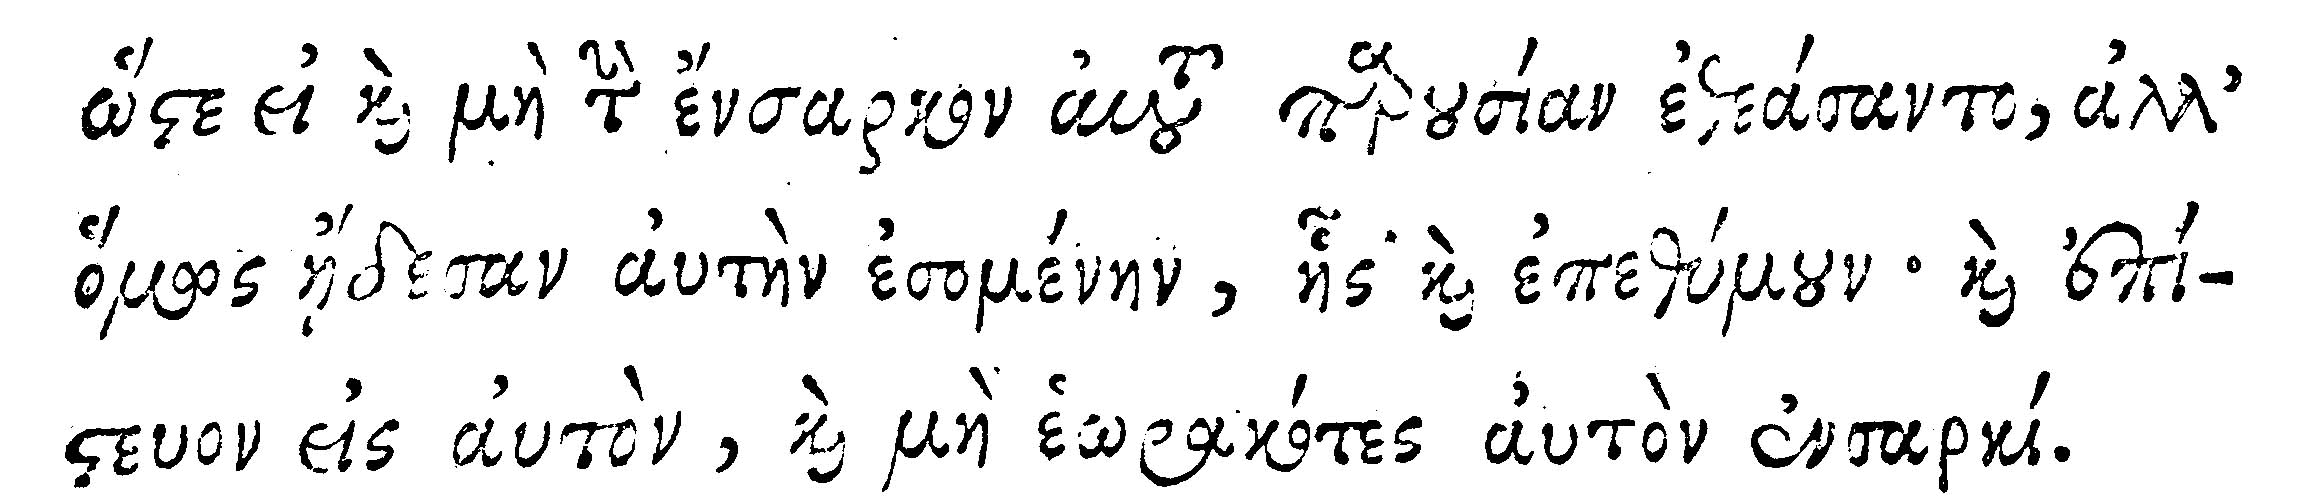 ὥϛε εἰ ϗ̀ μὴ τὴν ἔνσαρκον ἀυτοῦ παρουσίαν ἐθεάσαντο, ἀλλ᾽
ὅμως ᾔδεσαν ἀυτὴν ἐσομένην, ἧς ϗ̀ ἐπεθύμουν· ϗ̀ ἐπί-
ϛευον εἰς ἀυτὸν, ϗ̀ μὴ ἑωρακότες ἀυτὸν ἐνσαρκί.